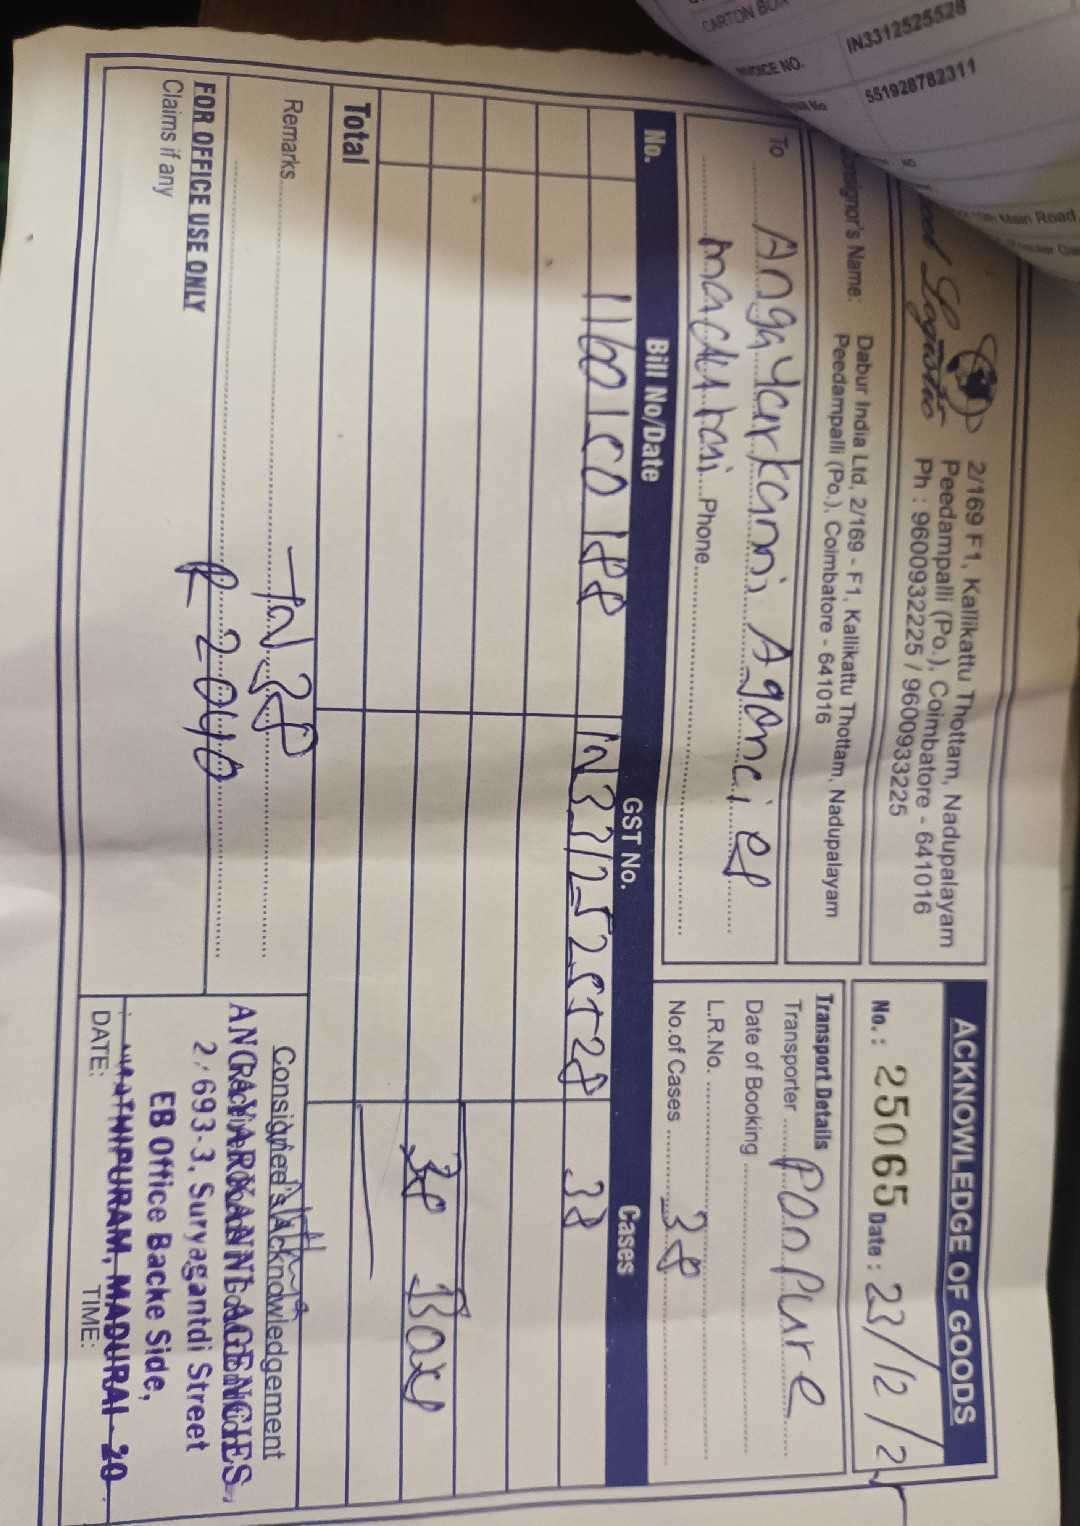 CARTON BOX
INVOICE NO. IN3312525528
No 551928782311
Main Road
Logistic
2/169 F1, Kallikattu Thottam, Nadupalayam
Peedampalli (Po.), Coimbatore - 641016
Ph : 9600932225 / 9600933225
ACKNOWLEDGE OF GOODS
No. : 25065 Date : 23/12/2
Consignor's Name: Dabur India Ltd, 2/169 - F1, Kallikattu Thottam, Nadupalayam
Peedampalli (Po.), Coimbatore - 641016
To Angayarkanni Agencies
madurai Phone
Transport Details
Transporter
Date of Booking
L.R.No.
No.of Cases 38
No. Bill No/Date GST No. Cases
38
38 Box
Total
Remarks
FOR OFFICE USE ONLY
Claims if any
Consignee's Acknowledgement
ANGAYARKANNI AGENCIES,
2/693-3, Suryagantdi Street
EB Office Backe Side,
MADURAI - 20
DATE: TIME: